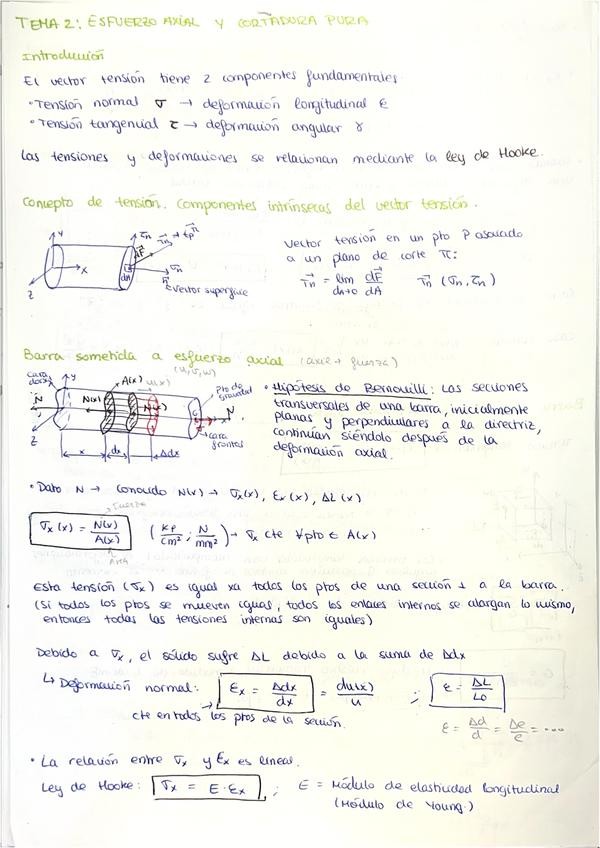 TEMA 2: ESFUERZO AXIAL Y CORTADURA PURA
Introducción
El vector tensión tiene 2 componentes fundamentales
• Tensión normal σ → deformación longitudinal ε
• Tensión tangencial τ → deformación angular γ
Las tensiones y deformaciones se relacionan mediante la ley de Hooke.
Concepto de tensión. Componentes intrínsecas del vector tensión.
Y
X
Z
τn
dF
dA
σn
n
vector superficie
vector tensión en un pto P asociado
a un plano de corte π:
Tn = lim dF/dA
dA→0
Tn (σn, τn)
Barra sometida a esfuerzo axial (axil → fuerza)
(u,v,w)
cara dorsal
y
A(x)
u(x)
pto de gravedad
N
N(x)
N(x)
G
N
x
z
cara frontal
x
dx
Δdx
• Hipótesis de Bernouilli: Las secciones
transversales de una barra, inicialmente
planas y perpendiculares a la directriz,
continúan siéndolo después de la
deformación axial.
• Dato N → conocido N(x) → σx(x), εx(x), ΔL(x)
Fuerza
σx(x) = N(x)/A(x) (kp/cm² ; N/mm²) → σx cte ∀pto ∈ A(x)
Área
Esta tensión (σx) es igual xa todos los ptos de una sección ⊥ a la barra.
(Si todos los ptos se mueven igual, todos los enlaces internos se alargan lo mismo,
entonces todas las tensiones internas son iguales)
Debido a σx, el sólido sufre ΔL debido a la suma de Δdx
↳ Deformación normal: εx = Δdx/dx = du(x)/u ; ε = ΔL/L0
→ cte en todos los ptos de la sección.
ε = Δd/d = Δe/e = ...
• La relación entre σx y εx es lineal.
Ley de Hooke: σx = E · εx ; E = Módulo de elasticidad longitudinal
(Módulo de Young.)